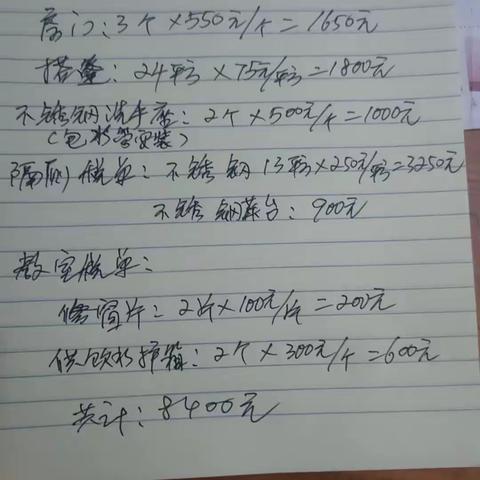 房门：3个×550元/个=1650元
搭蓬：24平方×75元/平方=1800元
不锈钢洗手台：2个×500元/个=1000元
（包水管安装）
隔厕 账单：不锈钢 13平方×250元/平方=3250元
不锈钢菜台：900元
教室账单：
修窗片：2片×100元/片=200元
护箱：2个×300元/个=600元
共计：8400元